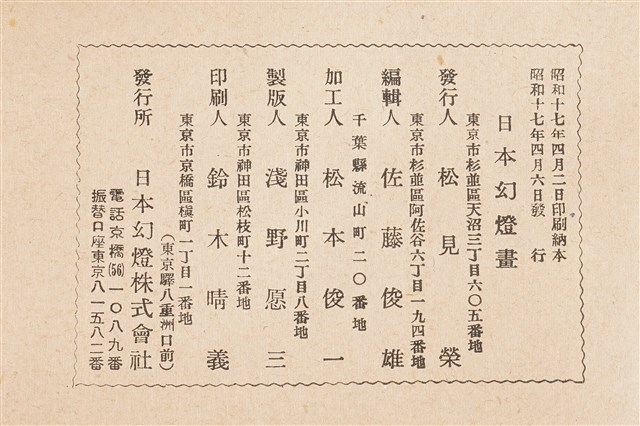 昭和十七年四月二日印刷納本
昭和十七年四月六日發行
日本幻燈畫
東京市杉並區天沼三丁目六〇五番地
發行人 松見榮
東京市杉並區阿佐谷六丁目一九四番地
編輯人 佐藤俊雄
千葉縣流山町二〇番地
加工人 松本俊一
東京市神田區小川町二丁目八番地
製版人 淺野愿三
東京市神田區松枝町十二番地
印刷人 鈴木晴義
東京市京橋區槇町一丁目一番地
(東京驛八重洲口前)
發行所 日本幻燈株式會社
電話京橋(56)一〇八九番
振替口座東京八一五八二番